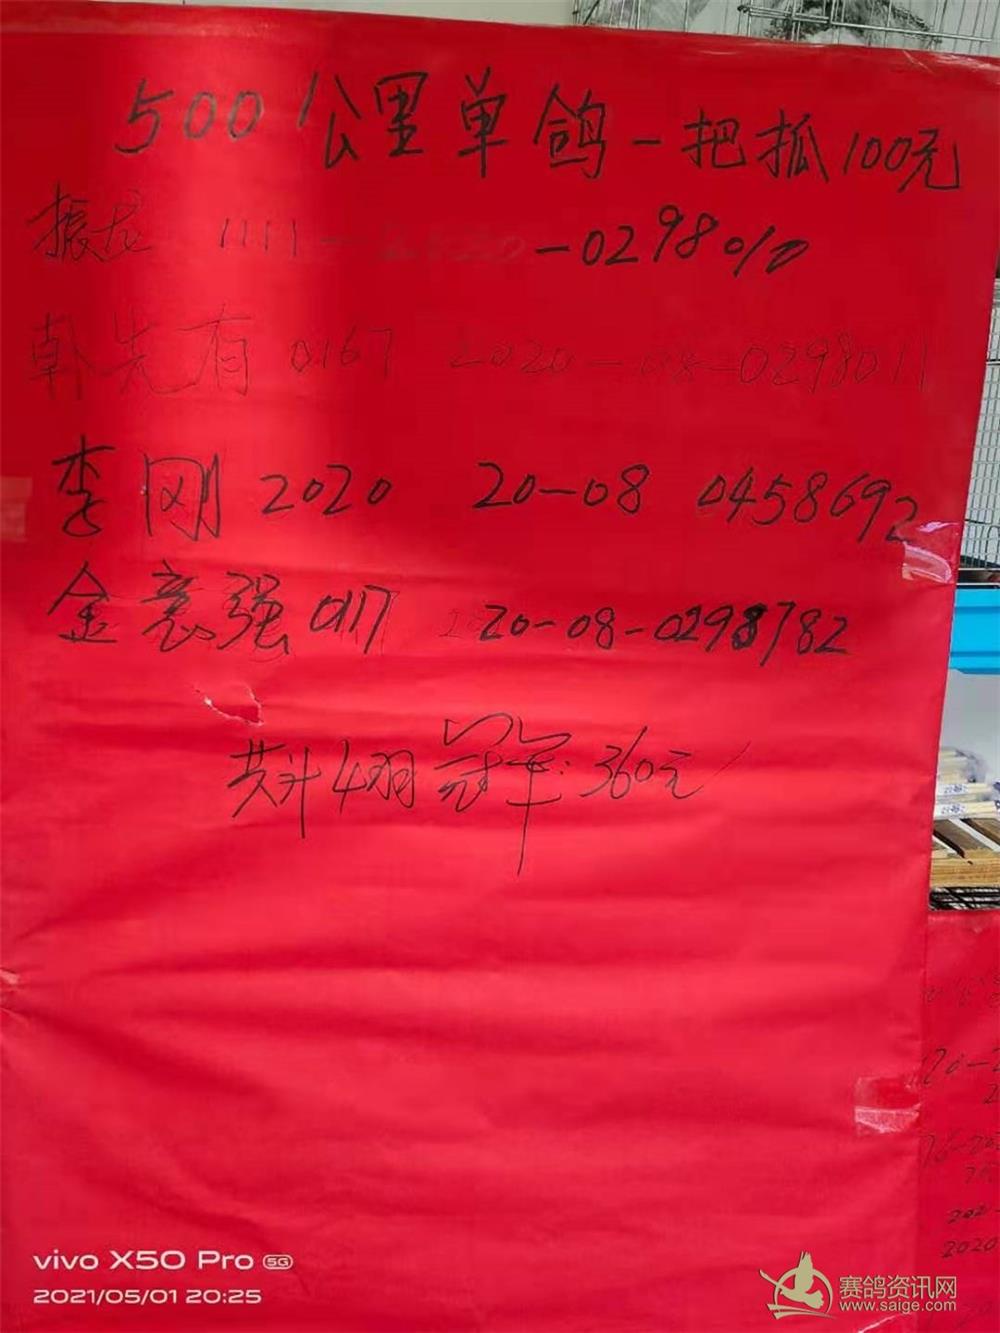 500公里单鸽一把抓100元
振龙 1111- -0298010
韩先有 0167 2020-08-0298011
李刚 2020 20-08 0458692
金意强 0117 20-08-0298782
共计4羽 冠军:360元
vivo X50 Pro 5G
2021/05/01 20:25
赛鸽资讯网
www.saige.com